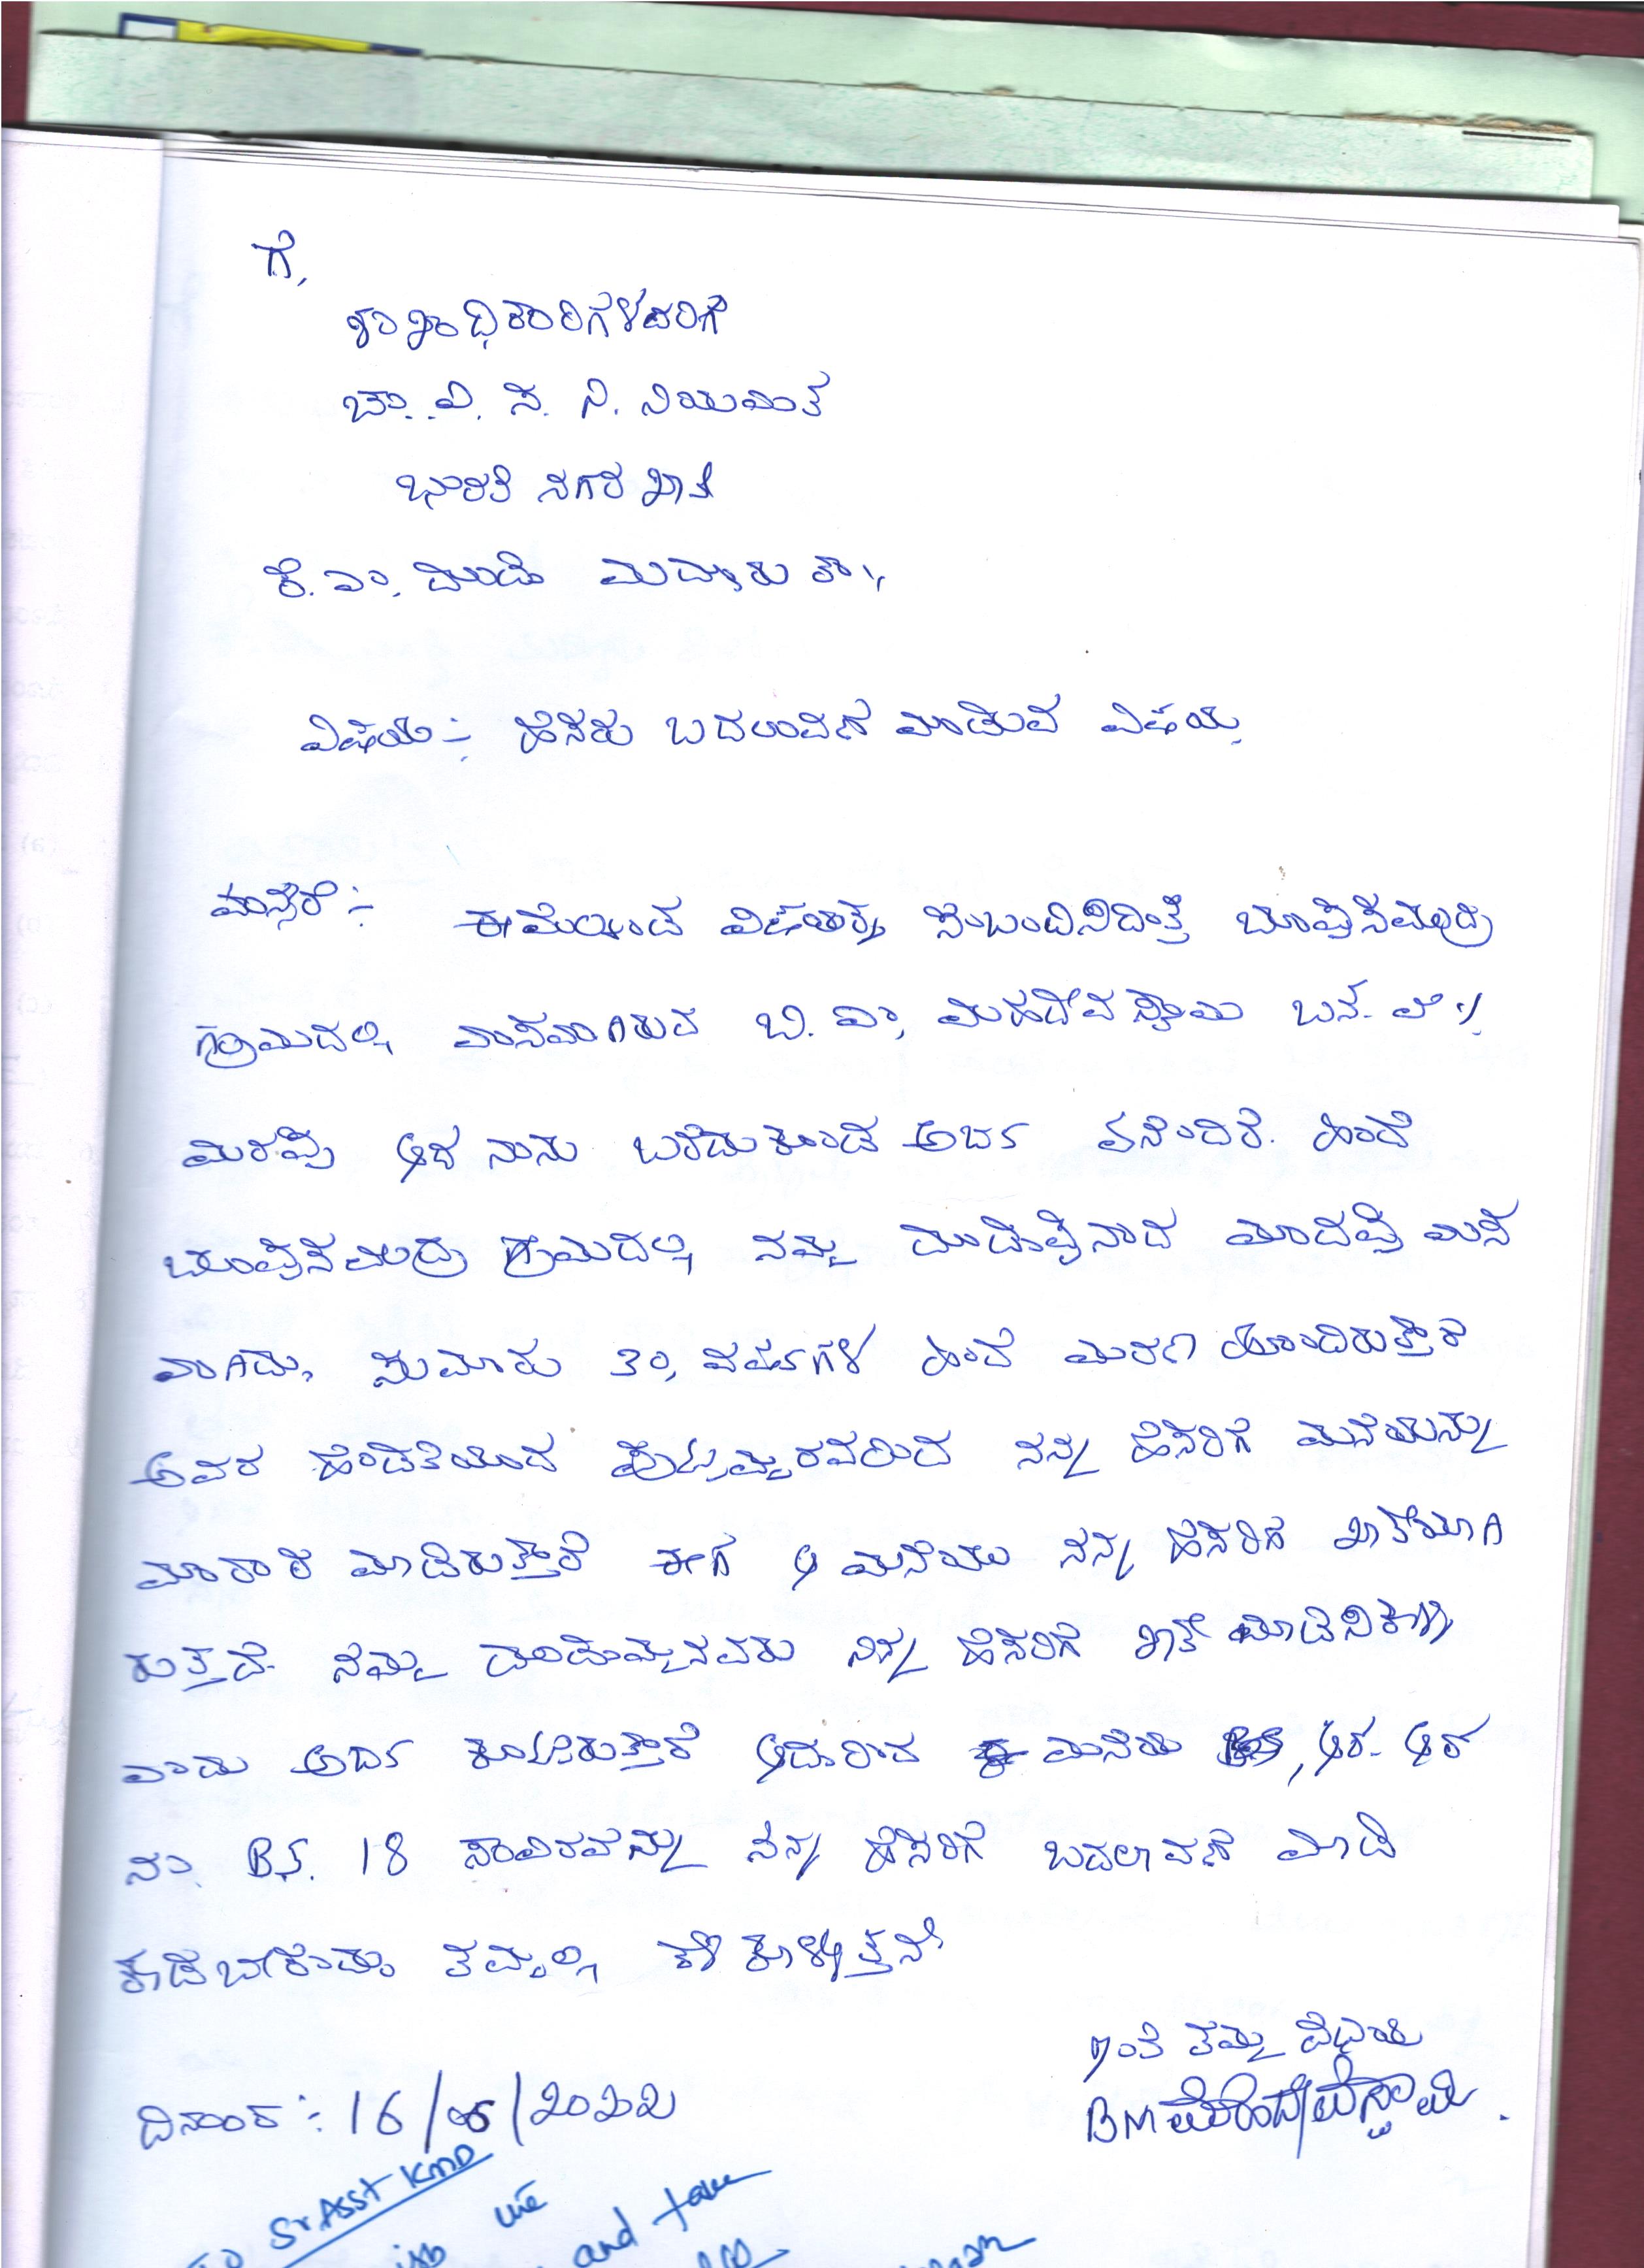 ಗೆ,
ಶಾಖಾಧಿಕಾರಿಗಳವರಿಗೆ
ಚಾ. ವಿ. ಸ. ನಿ. ನಿಯಮಿತ
ಭಾರತಿ ನಗರ ಶಾಖೆ
ಕೆ. ಎಂ. ದೊಡ್ಡಿ ಮದ್ದೂರು ತಾ||
ವಿಷಯ :- ಹೆಸರು ಬದಲಾವಣೆ ಮಾಡುವ ವಿಷಯ
ಮಾನ್ಯರೆ :- ಈ ಮೇಲ್ಕಂಡ ವಿಷಯಕ್ಕೆ ಸಂಬಂದಿಸಿದಂತ್ತೆ ಬೂಪ್ಪಸಮುದ್ರ
ಗ್ರಾಮದಲ್ಲಿ ವಾಸವಾಗಿರುವ ಬಿ. ಎಂ, ಮಹದೇವಸ್ವಾಮಿ ಬಿನ್.
ಆದ ನಾನು ಬರೆದುಕೊಂಡ ಅರ್ಜಿ ಹಿಂದೆ
ಬೂಪ್ಪಸಮುದ್ರ ಗ್ರಾಮದಲ್ಲಿ ನಮ್ಮ ದೊಡ್ಡಪ್ಪನಾದ ಮಾದಪ್ಪ
ಸುಮಾರು 30, ವರ್ಷಗಳ ಹಿಂದೆ ಮರಣ ಹೊಂದಿರುತ್ತಾರೆ
ಅವರ ಹೆಂಡತಿಯಾದ ಪುಟ್ಟಮ್ಮರವರಿಂದ ನನ್ನ ಹೆಸರಿಗೆ ಮನೆಯನ್ನು
ಮಾರಾಟ ಮಾಡಿರುತ್ತಾರೆ ಈಗ ಆ ಮನೆಯು ನನ್ನ ಹೆಸರಿಗೆ ಖಾತೆಯಾಗಿ
ರುತ್ತದೆ. ನಮ್ಮ ದೊಡ್ಡಮ್ಮನವರು ನನ್ನ ಹೆಸರಿಗೆ ಖಾತೆ ಮಾಡಿಸಿಕೊಳ್ಳ
ಅರ್ಜಿ ಕೊಟ್ಟಿರುತ್ತಾರೆ ಆದ್ದರಿಂದ ಮನೆಯ ಆರ್. ಆರ್
ನಂ. BS. 18 ನನ್ನ ಹೆಸರಿಗೆ ಬದಲಾವಣೆ ಮಾಡಿ
ಕೊಡಬೇಕೆಂದು ತಮ್ಮಲ್ಲಿ ಕೇಳಿಕೊಳ್ಳುತ್ತೆನೆ
ಇಂತಿ ತಮ್ಮ ವಿಧೇಯ
BM ಮಹದೇವಸ್ವಾಮಿ.
ದಿನಾಂಕ :- 16/06/2022
To Sr Asst KMD
and take